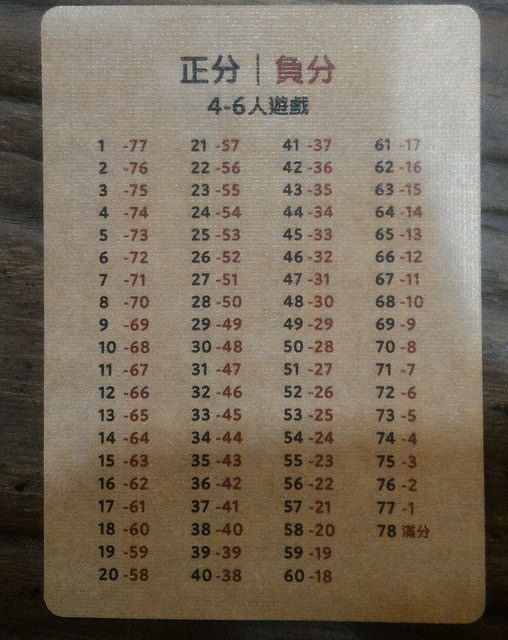 正分｜負分
4-6人遊戲
1 -77 21 -57 41 -37 61 -17
2 -76 22 -56 42 -36 62 -16
3 -75 23 -55 43 -35 63 -15
4 -74 24 -54 44 -34 64 -14
5 -73 25 -53 45 -33 65 -13
6 -72 26 -52 46 -32 66 -12
7 -71 27 -51 47 -31 67 -11
8 -70 28 -50 48 -30 68 -10
9 -69 29 -49 49 -29 69 -9
10 -68 30 -48 50 -28 70 -8
11 -67 31 -47 51 -27 71 -7
12 -66 32 -46 52 -26 72 -6
13 -65 33 -45 53 -25 73 -5
14 -64 34 -44 54 -24 74 -4
15 -63 35 -43 55 -23 75 -3
16 -62 36 -42 56 -22 76 -2
17 -61 37 -41 57 -21 77 -1
18 -60 38 -40 58 -20 78 滿分
19 -59 39 -39 59 -19
20 -58 40 -38 60 -18